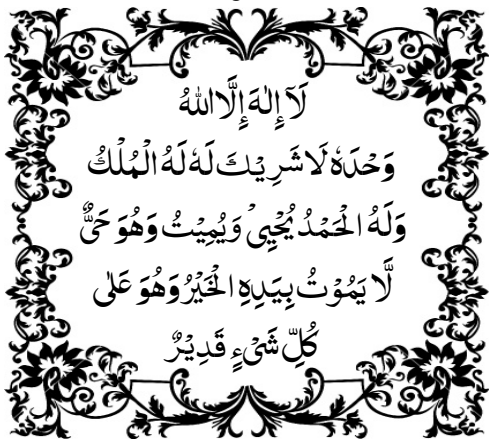 لَآ إِلٰهَ إِلَّا اللهُ
وَحْدَهٗ لَا شَرِيْكَ لَهٗ لَهُ الْمُلْكُ
وَلَهُ الْحَمْدُ يُحْيِيْ وَيُمِيْتُ وَهُوَ حَيٌّ
لَّا يَمُوْتُ بِيَدِهِ الْخَيْرُ وَهُوَ عَلٰى
كُلِّ شَيْءٍ قَدِيْرٌ